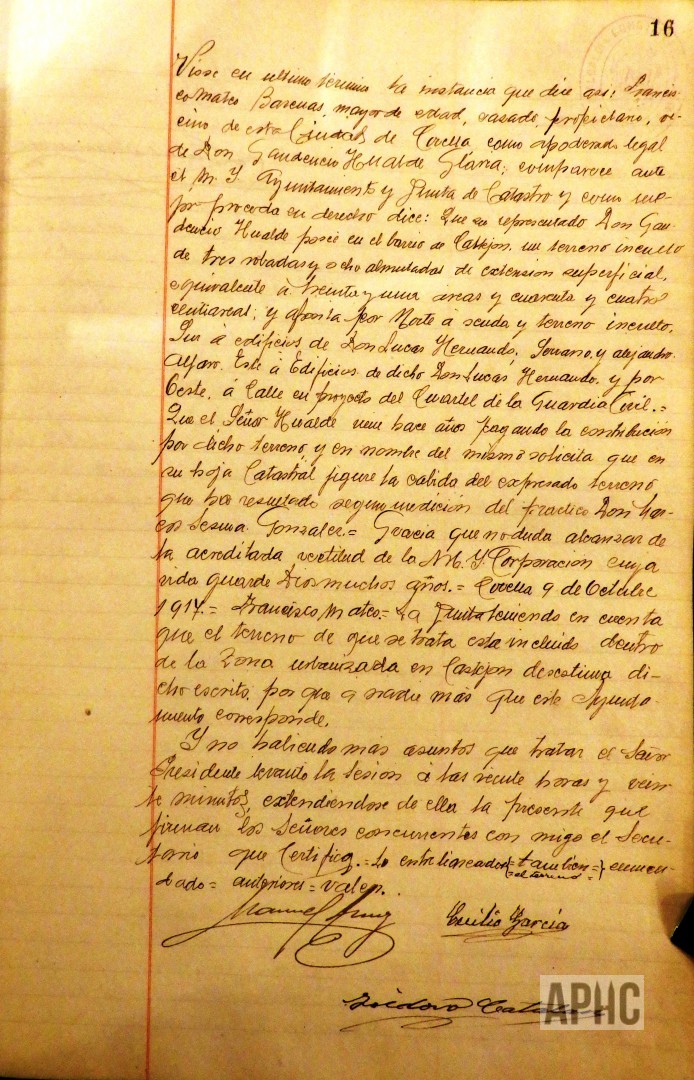 16
Vióse en ultimo termino la instancia que dice asi: Francis-
co Mateo Barcenas, mayor de edad, casado, propietario, ve-
cino de esta Ciudad de Corella, como apoderado legal
de Don Gaudencio Hualde Glaria, comparece ante
el M. Y. Ayuntamiento y Junta de Catastro y como me-
jor proceda en derecho dice: Que su representado Don Gau-
dencio Hualde posee en el barrio de Castejon un terreno inculto
de tres robadas y ocho almutadas de extension superficial,
equivalente á treinta y una areas y cuarenta y cuatro
centiareas; y afronta por Norte á senda y terreno inculto,
Sur á edificios de Don Lucas Hernando, Serrano, y alejandro
Alfaro. Este á Edificios de dicho Don Lucas Hernando, y por
Oeste, á Calle en proyecto del Cuartel de la Guardia Civil.=
Que el Señor Hualde viene hace años pagando la contribución
por dicho terreno, y en nombre del mismo solicita que en
su hoja Catastrál figure la cabida del expresado terreno
que ha resultado segun medición del practico Don Mar-
cos Sesma Gonzalez.= Gracia que no duda alcanzar de
la acreditada rectitud de la M. Y. Corporación cuya
vida guarde Dios muchos años.= Corella 9 de Octubre
1917.= Francisco Mateo.= La Junta teniendo en cuenta
que el terreno de que se trata esta incluido dentro
de la Zona urbanizada en Castejon desestima di-
cho escrito, por que a nadie más que este Ayunta-
miento corresponde.
Y no habiendo más asuntos que tratar el Señor
Presidente levantó la Sesion á las veinte horas y vein-
te minutos, extendiéndose de ella la presente que
firman los Señores concurrentes con migo el Secre-
tario que Certifico.= Lo entrelineado (=tambien=) enmen-
=el terreno=
dado= anteriores= valen.
Manuel
Emilio García
Isidoro
APHC